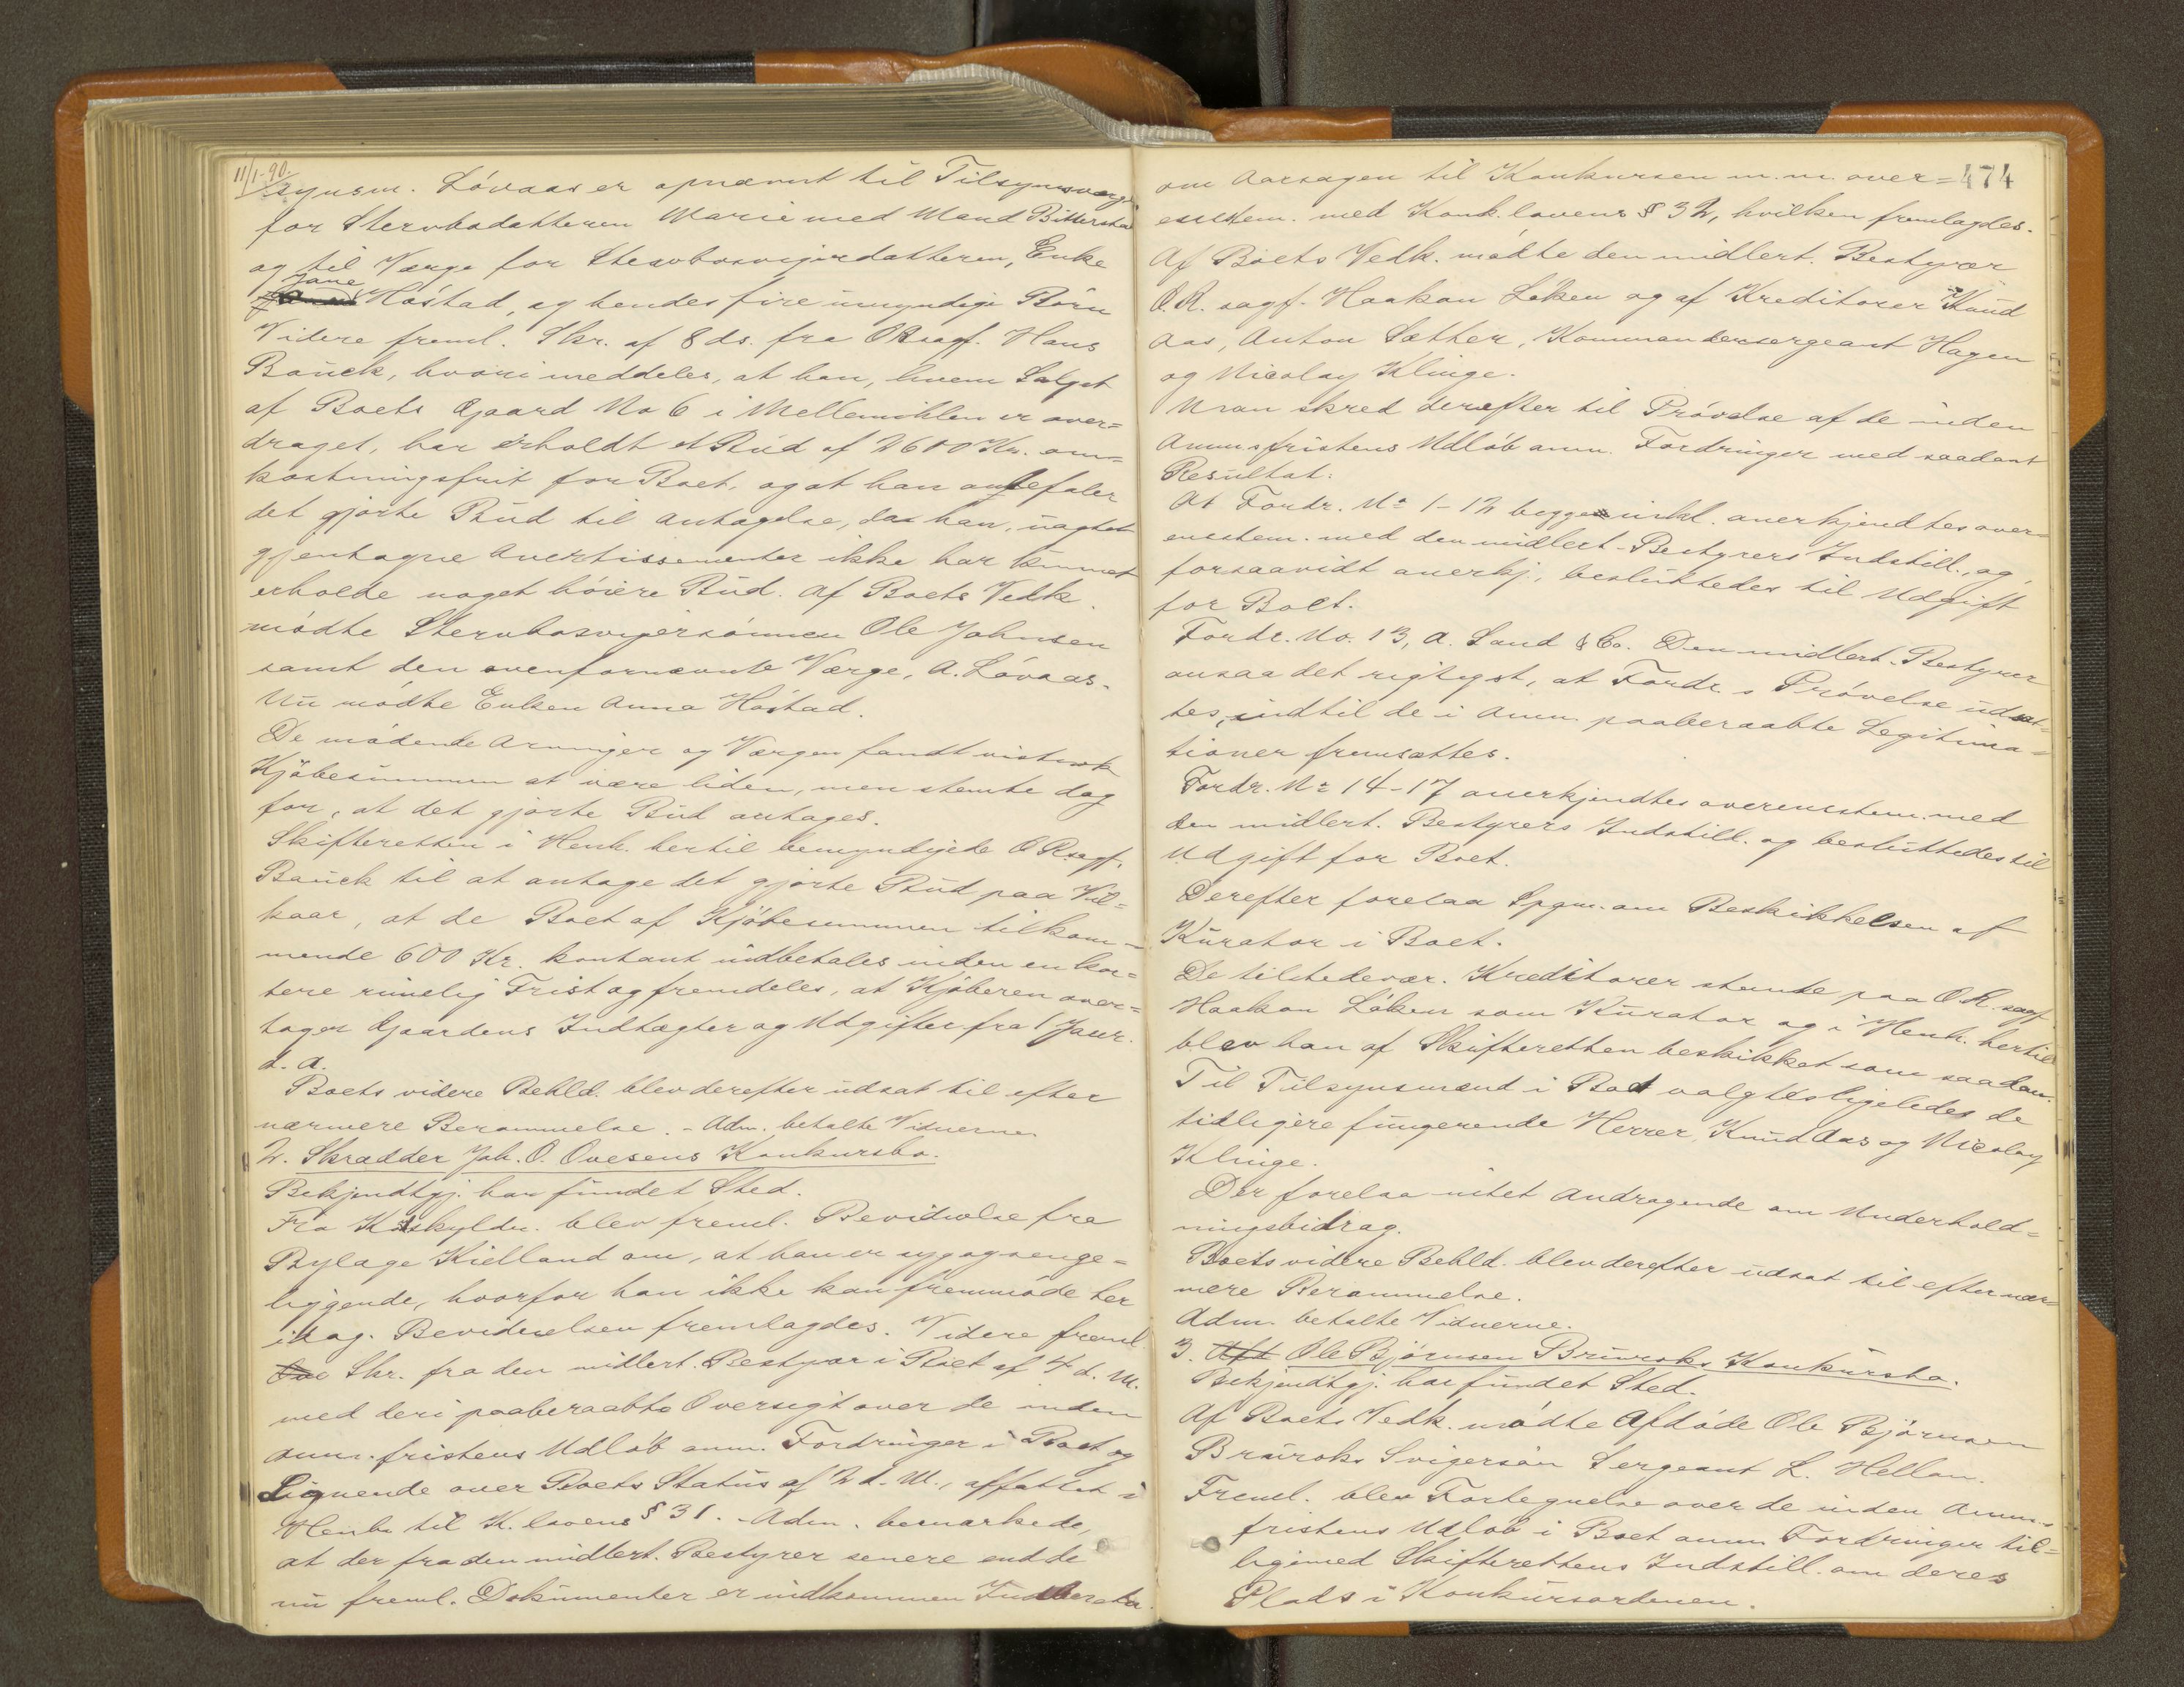 11/1-90.
synsm. Lövaas er opnævnt til Tilsynsværge
for Stervbodatteren Marie med Mand Bitterstad
og til Værge for Stervbosvigerdatteren, Enke
Jane
Höstad, og hendes fire umyndige Börn
Videre freml. Skr. af 8 ds. fra ORsagf. Hans
Bauck, hvori meddeles, at han, hvem Salget
af Boets Gaard No 6 i Mellemiklen er over=
draget, har erholdt et Bud af 2600 Kr. om=
kostningsfrit for Boet, og at han anbefaler
det gjorte Bud til Antagelse, da han, uagtet
gjentagne Avertissementer ikke har kunnet
erholde noget höiere Bud. Af Boets Vedk.
mödte Stervbosvigersönnen Ole Johnsen
samt den ovenfornævnte Værge, A. Lövaas.
Nu mödte Enken Anna Höstad.
De mödende Arvinger og Værgen fandt vistnok
Kjöbesummen at være liden, men stemte dog
for, at det gjorte Bud antages.
Skifteretten i Henh. hertil bemyndigede ORsagf.
Bauck til at antage det gjorte Bud paa Vil=
kaar, at de Boet af Kjöbesummen tilkom-
mende 600 Kr. kontant indbetales inden en kor=
tere rimelig Frist og fremdeles, at Kjöberen over=
tager Gaardens Indtægter og Udgifter fra 1 Januar.
d. A.
Boets videre Behld. blev derefter udsat til efter
nærmere Berammelse. - Adm. betalte Vidnerne
2. Skrædder Joh. O. Ovesens Konkursbo.
Bekjendtgj. har fundet Sted.
Fra Koskyldn. blev freml. Bevidnelse fra
Bylæge Kielland om, at han er syg og senge=
liggende, hvorfor han ikke kan fremmöde her
idag. Bevidnelsen fremlagdes. Videre freml.
Skr. fra den midlert. Bestyrer i Boet af 4 d. M.
med deri paaberaabte Oversigt over de inden
Anm. fristens Udlöb anm. Fordringer i Boet og
Lignende over Boets Status af 2 d. M., affattet i
Henh. til K. lovens § 31. - Adm. bemærkede,
at der fra den midlert. Bestyrer senere end de
nu freml. Dokumenter er indkommen Indberetn.
474
om Aarsagen til Konkursen m. m. over=
ensstem. med Konk. lovens § 32, hvilken fremlagdes.
Af Boets Vedk. mödte den midlert. Bestyrer
O.R. sagf. Haakon Löken og af Kreditorer Knud
Aas, Anton Sæther, Kommandersergeant Hagen
og Nicolay Klinge.
Man skred derefter til Prövelse af de inden
Anmsfristens Udlöb anm. Fordringer med saadant
Resultat:
At Fordr. No 1-12 begge inkl. anerkjendtes over=
ensstem. med den midlert. Bestyrers Indstill., og,
forsaavidt anerkj., besluttedes til Udgift
for Boet.
Fordr. No. 13, A. Sand & Co. Den midlert. Bestyrer
ansaa det rigtigst, at Fordr.s Prövelse udsat-
tes, indtil de i Anm. paaberaabte Legitima=
tioner fremsattes.
Fordr. No 14-17 anerkjendtes overensstem. med
den midlert. Bestyrers Indstill. og besluttedes til
Udgift for Boet.
Derefter forelaa Spgm. om Beskikkelsen af
Kurator i Boet.
De tilstedevær. Kreditorer stemte paa O.R. sagf
Haakon Löken som Kurator og i Henh. hertil
blev han af Skifteretten beskikket som saadan.
Til Tilsynsmænd i Boet valgtes ligeledes de
tidligere fungerende Herrer Knud Aas og Nicolay
Klinge.
Der forelaa intet Andragende om Underhold=
ningsbidrag.
Boets videre Behld. blev derefter udsat til efter nær=
mere Berammelse.
Adm. betalte Vidnerne.
3. Ole Björnsen Bruroks Konkursbo.
Bekjendtgj. har fundet Sted.
Af Boets Vedk. mödte Afdöde Ole Björnsen
Bruroks Svigersön Sergeant L. Hellan.
Freml. blev Fortegnelse over de inden Anm.-
fristens Udlöb i Boet anm. Fordringer til=
ligemed Skifterettens Indstill. om deres
Plads i Konkursordenen.